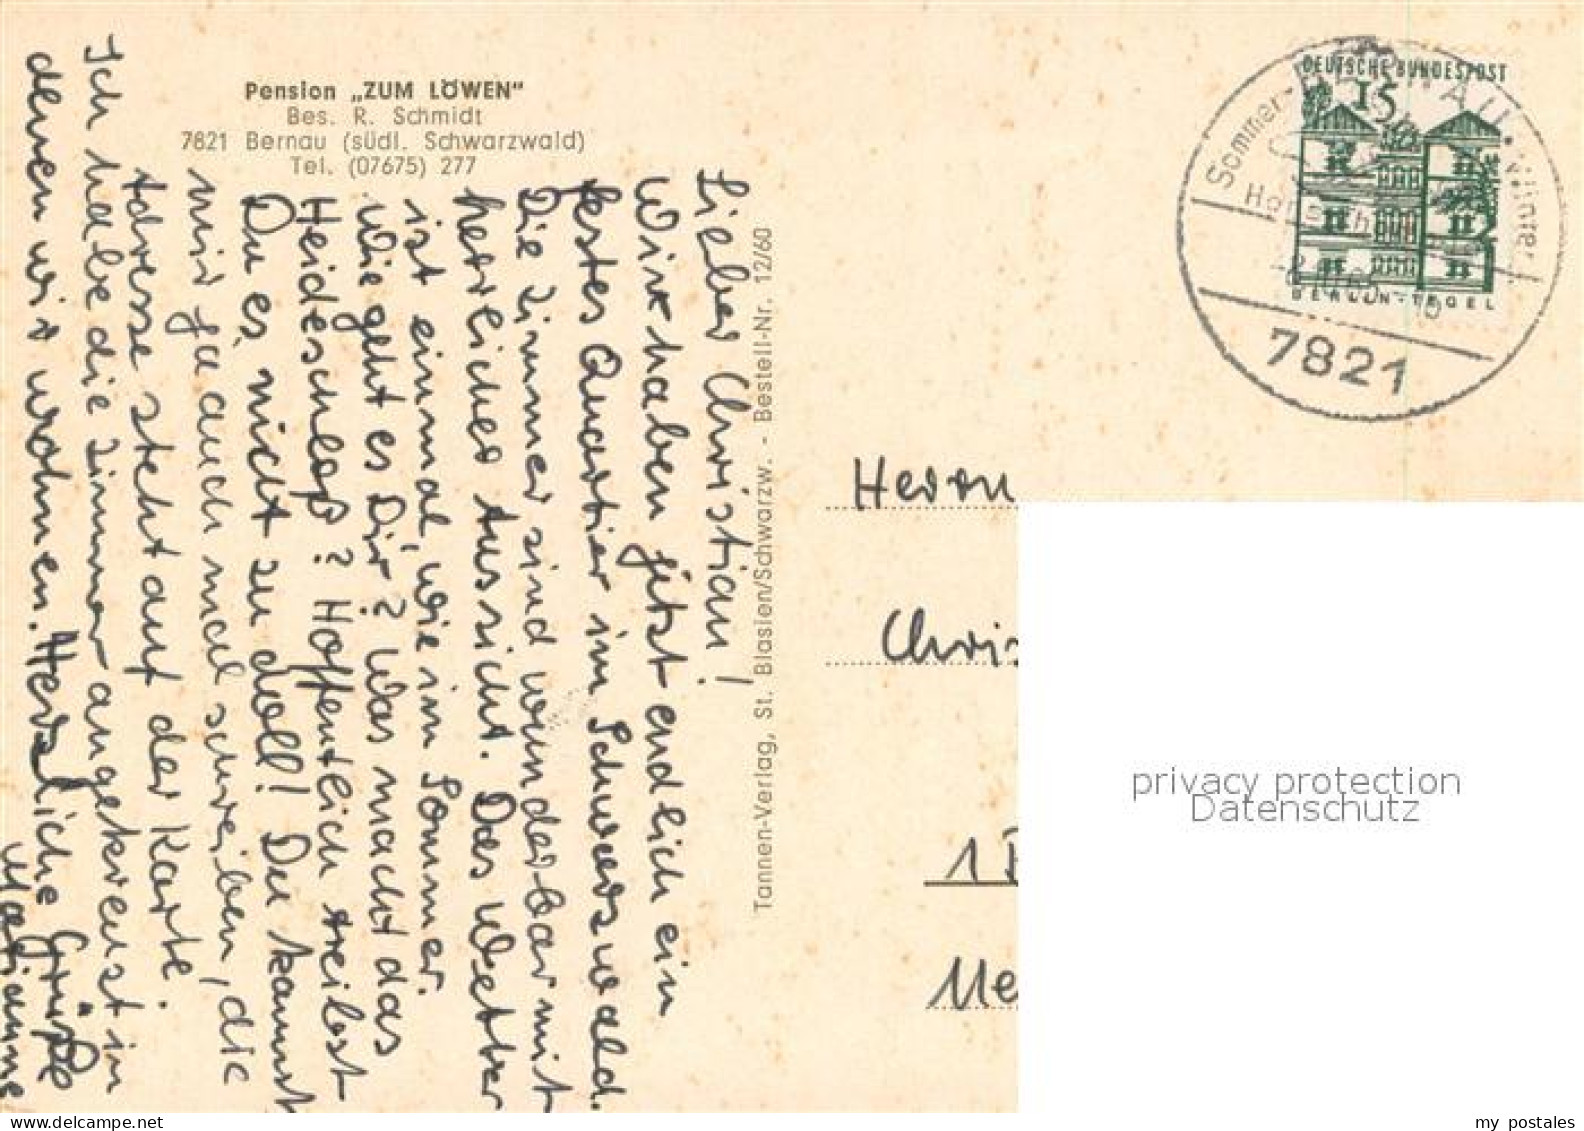 Pension „ZUM LÖWEN"
Bes. R. Schmidt
7821 Bernau (südl. Schwarzwald)
Tel. (07675) 277
Lieber Christian!
Wir haben jetzt endlich ein
festes Quartier im Schwarzwald.
Die Zimmer sind wunderbar mit
herrlicher Aussicht. Das Wetter
ist einmal, wie im Sommer.
Wie geht es Dir? Was macht das
Heideschloß? Hoffentlich treibst
Du es nicht zu doll! Du kannst
mir ja auch mal schreiben, die
Adresse steht auf der Karte.
Ich habe die Zimmer angekreuzt in
denen wir wohnen. Herzliche Grüße
Marianne
Tannen-Verlag, St. Blasien/Schwarzw. - Bestell-Nr. 12/60
DEUTSCHE BUNDESPOST
15
BERLIN-TEGEL
Sommer-
BERNAU
7821
Herrn
Chris
1
Me
privacy protection
Datenschutz
www.delcampe.net
my postales